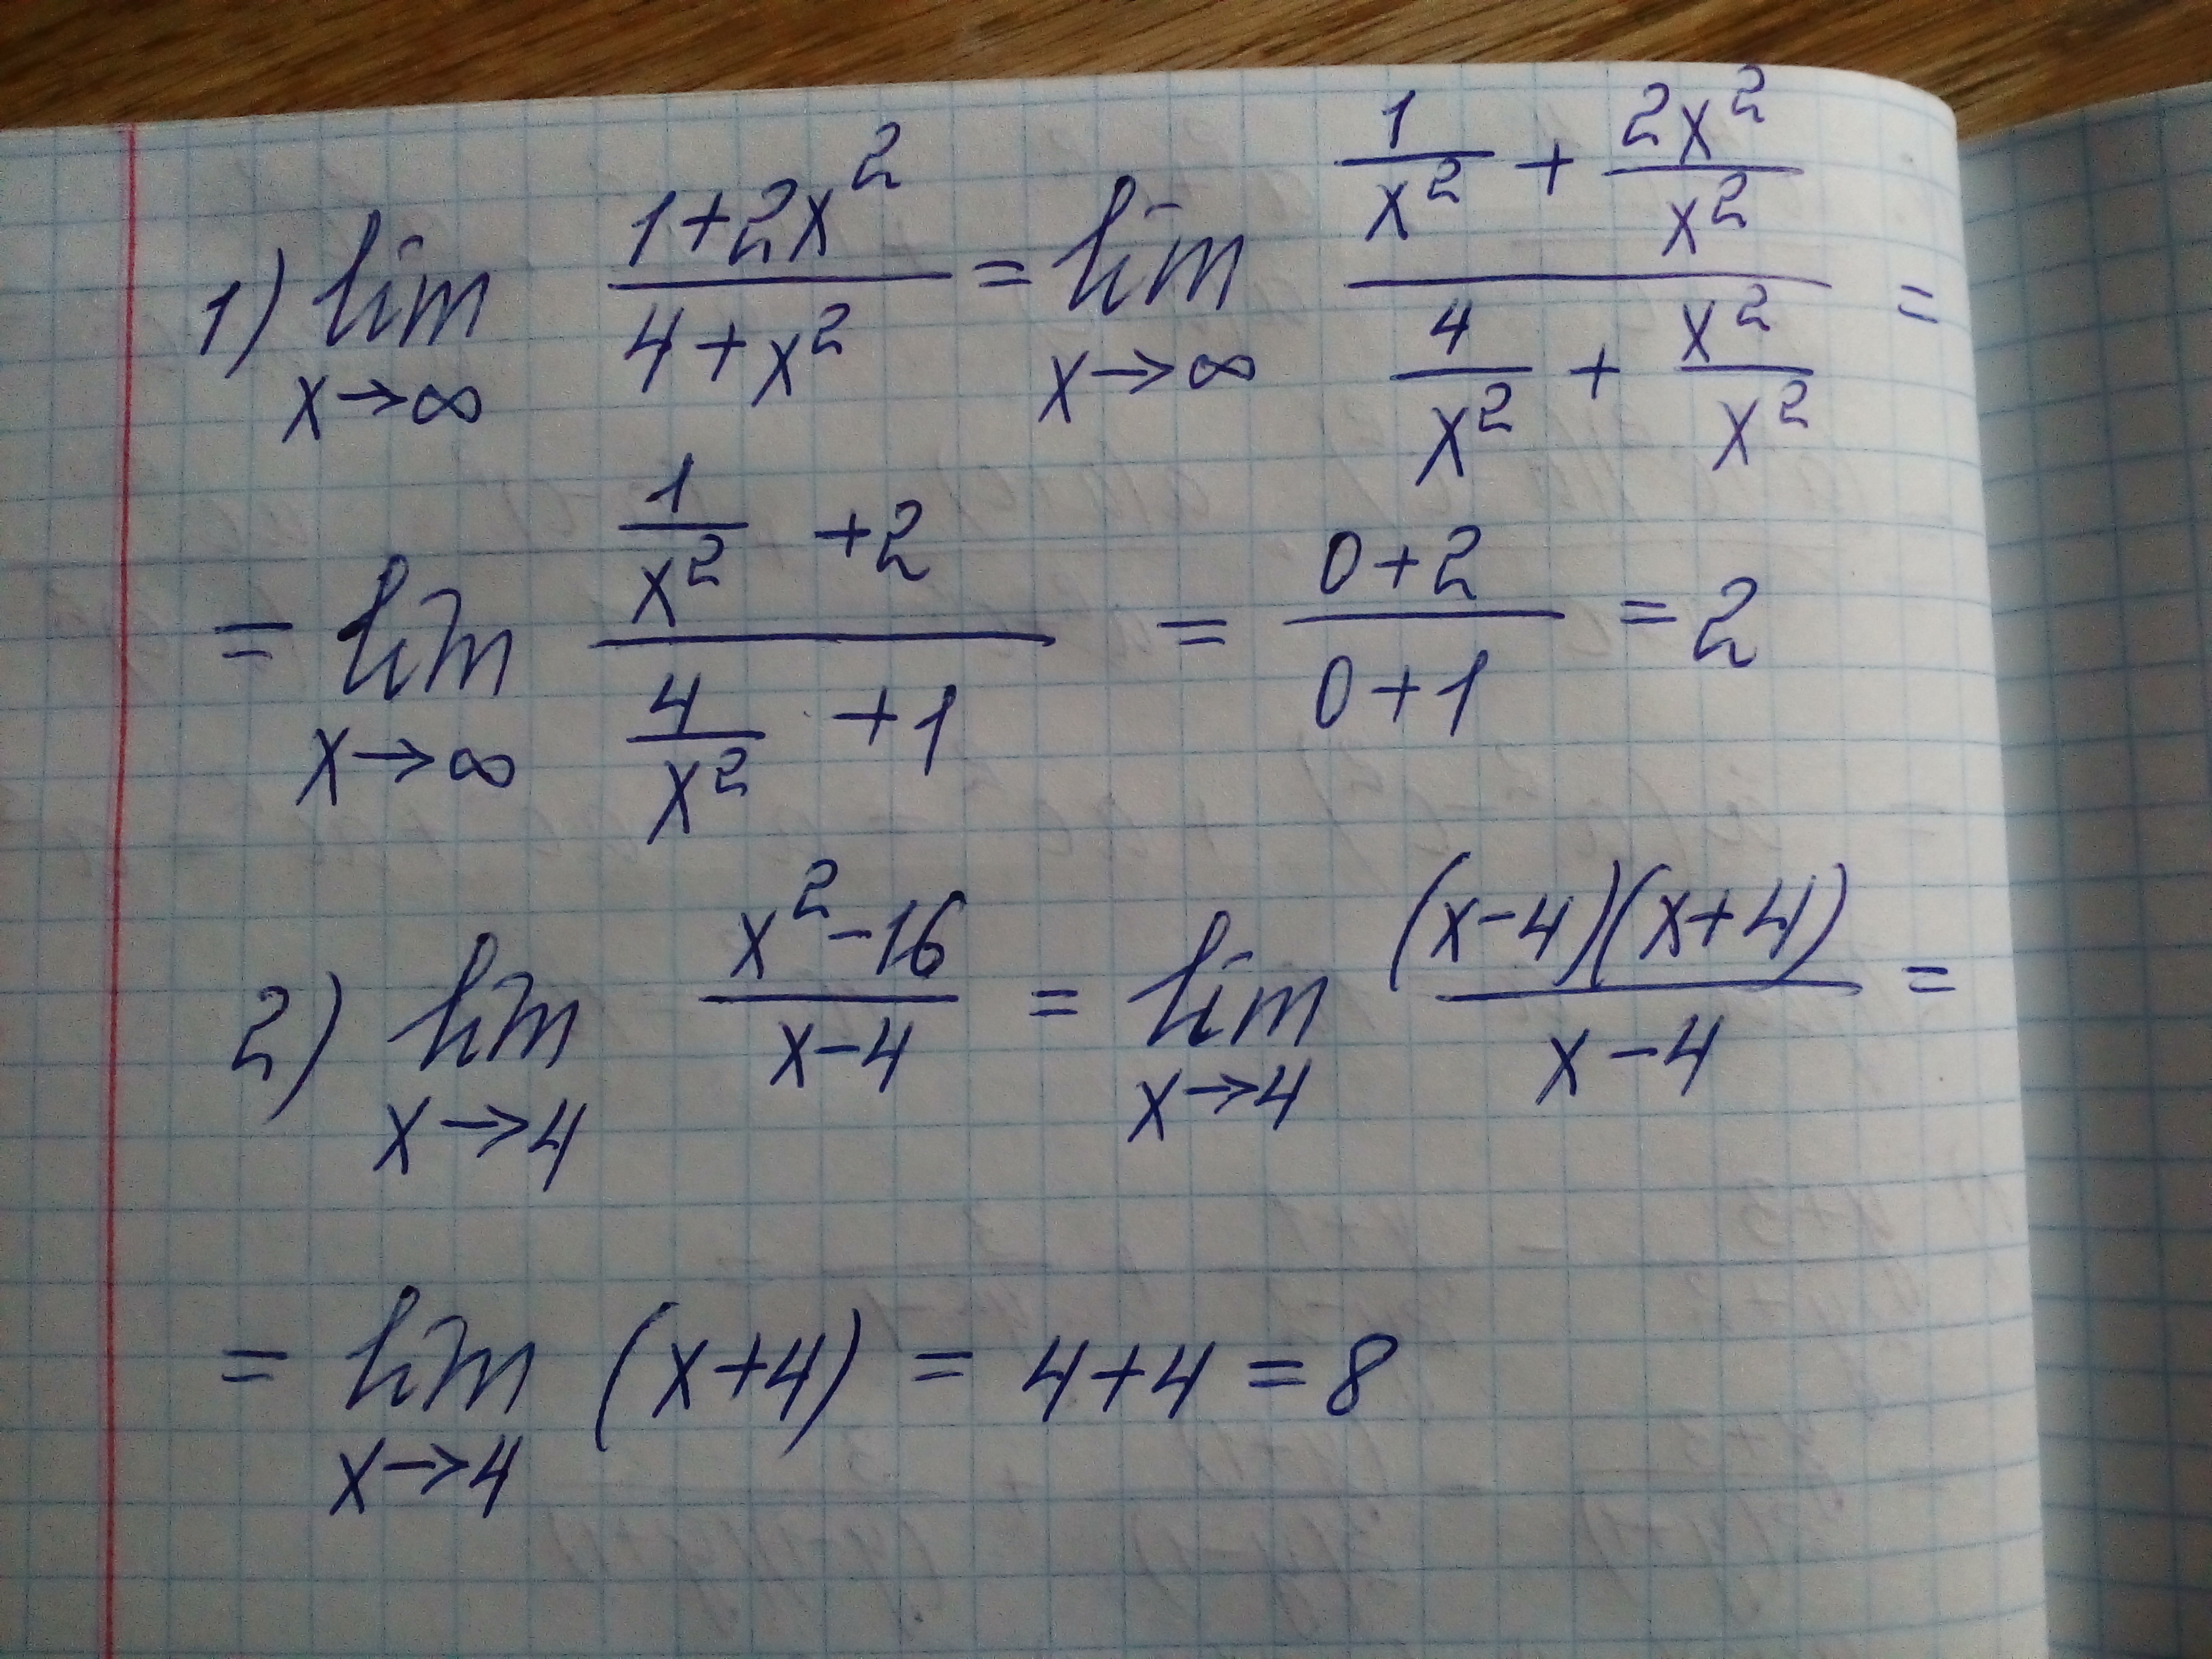 1) lim x→∞ (1+2x²)/(4+x²) = lim x→∞ (1/x² + 2x²/x²)/(4/x² + x²/x²) =
= lim x→∞ (1/x² +2)/(4/x² +1) = (0+2)/(0+1) = 2
2) lim x→4 (x²-16)/(x-4) = lim x→4 ((x-4)(x+4))/(x-4) =
= lim x→4 (x+4) = 4+4 = 8